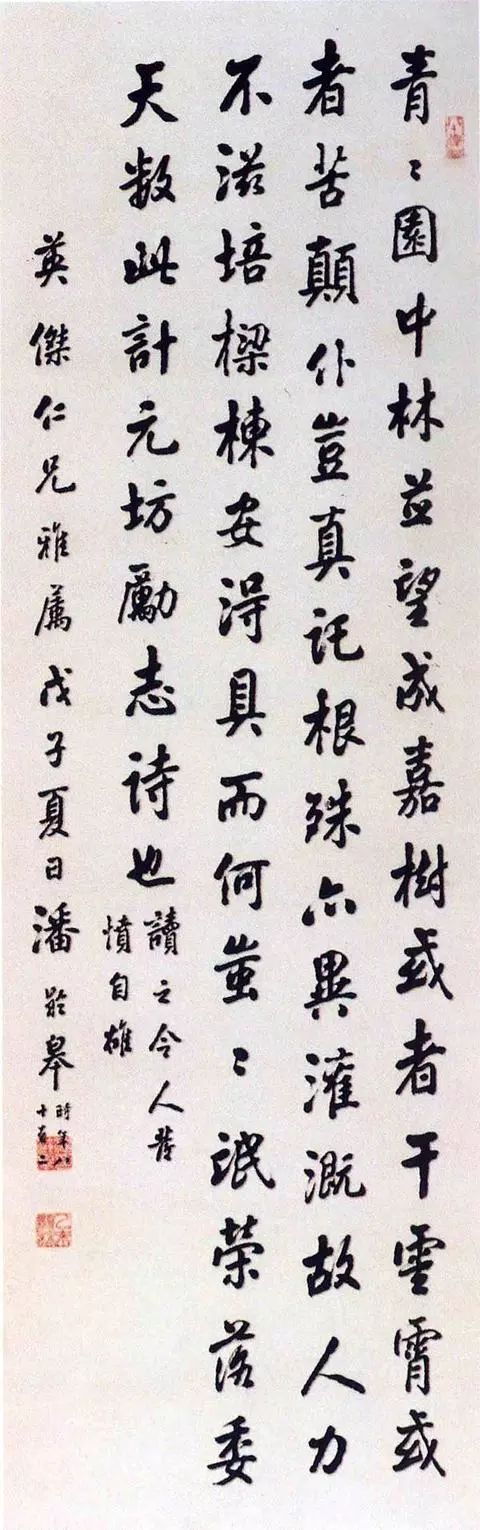 青〻園中林並望成嘉樹或者干雲霄或
者苦顛仆豈真託根殊亦異灌溉故人力
不滋培樑棟安得具而何蚩〻氓榮落委
天數此計元坊勵志詩也
讀之令人發
憤自雄
英傑仁兄雅屬戊子夏日潘齡皋
時年八
十有二